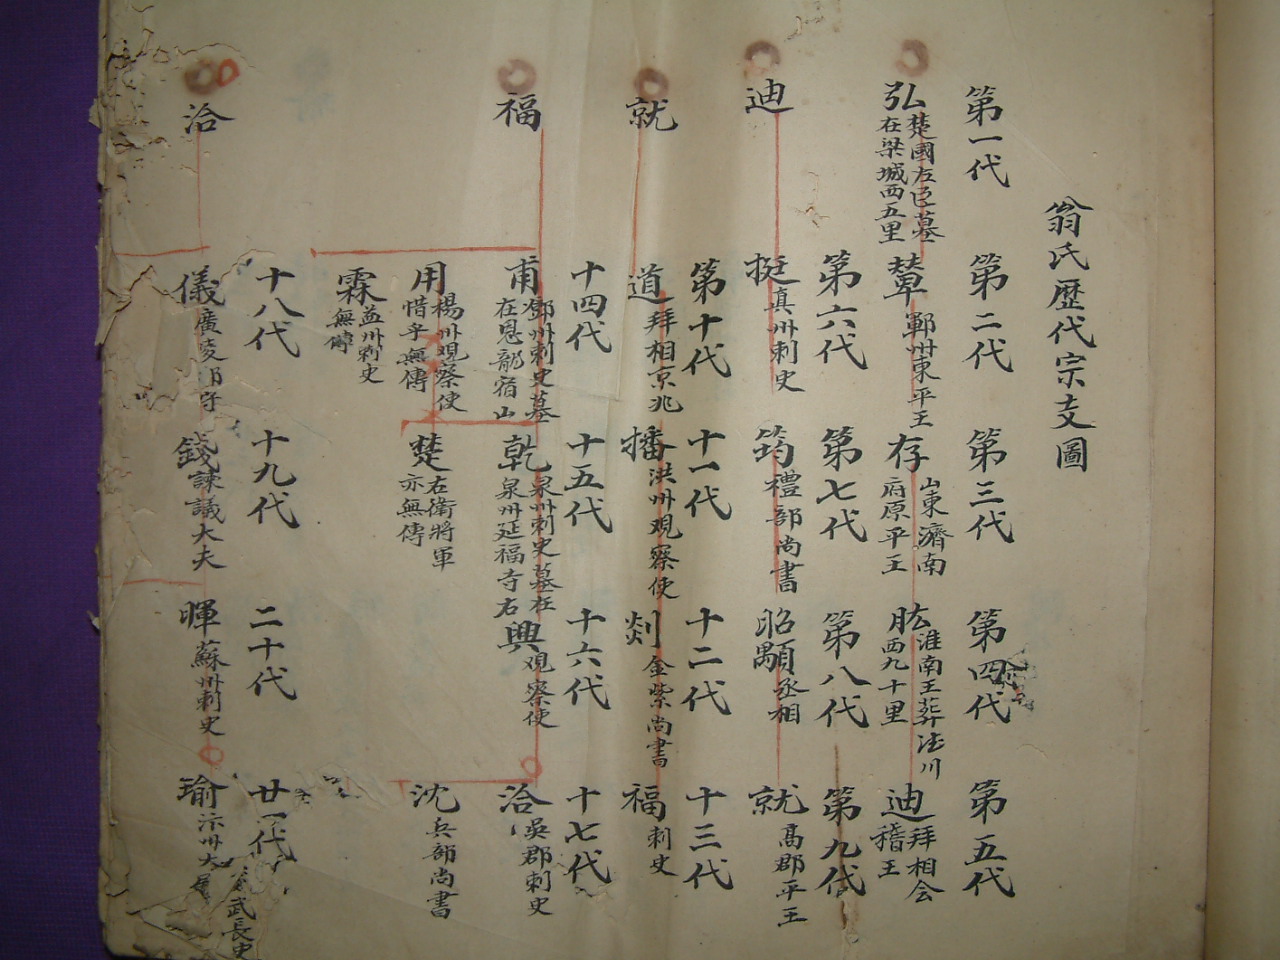 翁氏歷代宗支圖
第一代
弘
楚國左臣墓
在梁城西五里
第二代
鄆州東平王
第三代
存
山東濟南
府原平王
第四代
肱
淮南王葬
西九十里
第五代
迪
拜相会
稽王
迪
第六代
挺
真州刺史
第七代
筠
禮部尚書
第八代
昭顒
丞相
第九代
就
高郡平王
就
第十代
道
拜相京兆
十一代
播
洪州观察使
十二代
剡
金紫尚書
十三代
福
刺史
福
十四代
甫
鄧州刺史墓
在恩龍宿山
用
楊州观察使
惜乎無傳
霖
益州刺史
無傳
十五代
乾
泉州刺史墓在
泉州延福寺右
楚
右衛將軍
亦無傳
十六代
興
观察使
十七代
洽
吳郡刺史
沈
兵部尚書
洽
十八代
儀
廣陵郡守
十九代
錢
諫議大夫
二十代
暉
蘇州刺史
廿一代
瑜
武長史